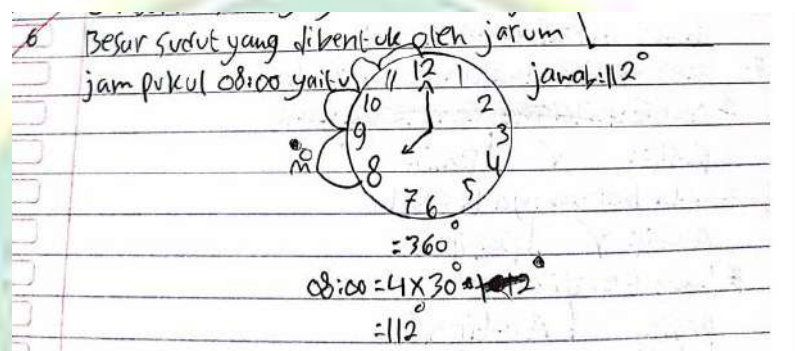 6 Besar sudut yang dibentuk oleh jarum
jam pukul 08:00 yaitu
jawab: 112°
11 12 1
10 2
9 3
8 4
7 6 5
30°
= 360°
08:00 = 4 x 30°
= 112°